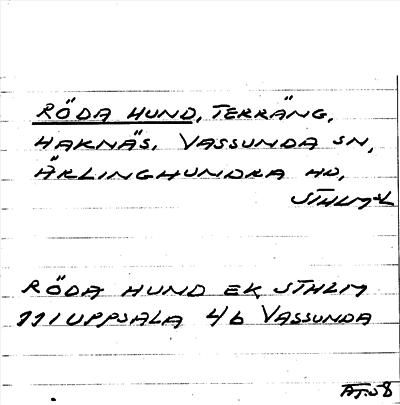 RÖDA HUND, TERRÄNG,
HAKNÄS, VASSUNDA SN,
ÄRLINGHUNDRA HD,
STHLM L
RÖDA HUND EK STHLM
111 UPPSALA 4b VASSUNDA